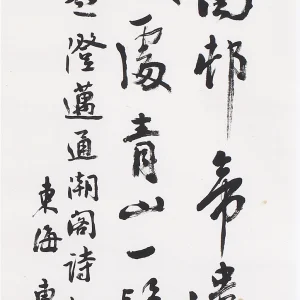 邨帝
處青山一
澄邁通潮閣詩
東海